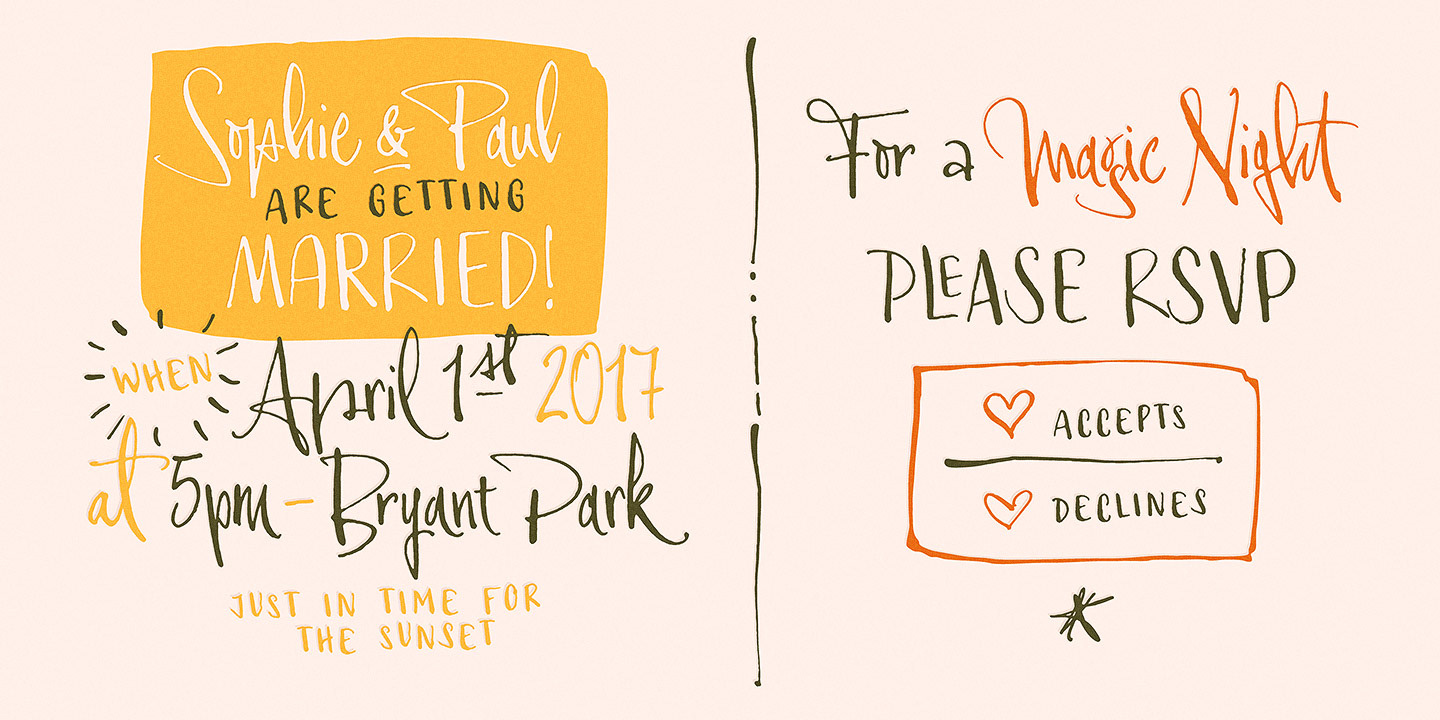 Sophie & Paul
ARE GETTING
MARRIED!
WHEN April 1st 2017
at 5pm - Bryant Park
JUST IN TIME FOR
THE SUNSET
For a Magic Night
PLEASE RSVP
ACCEPTS
DECLINES